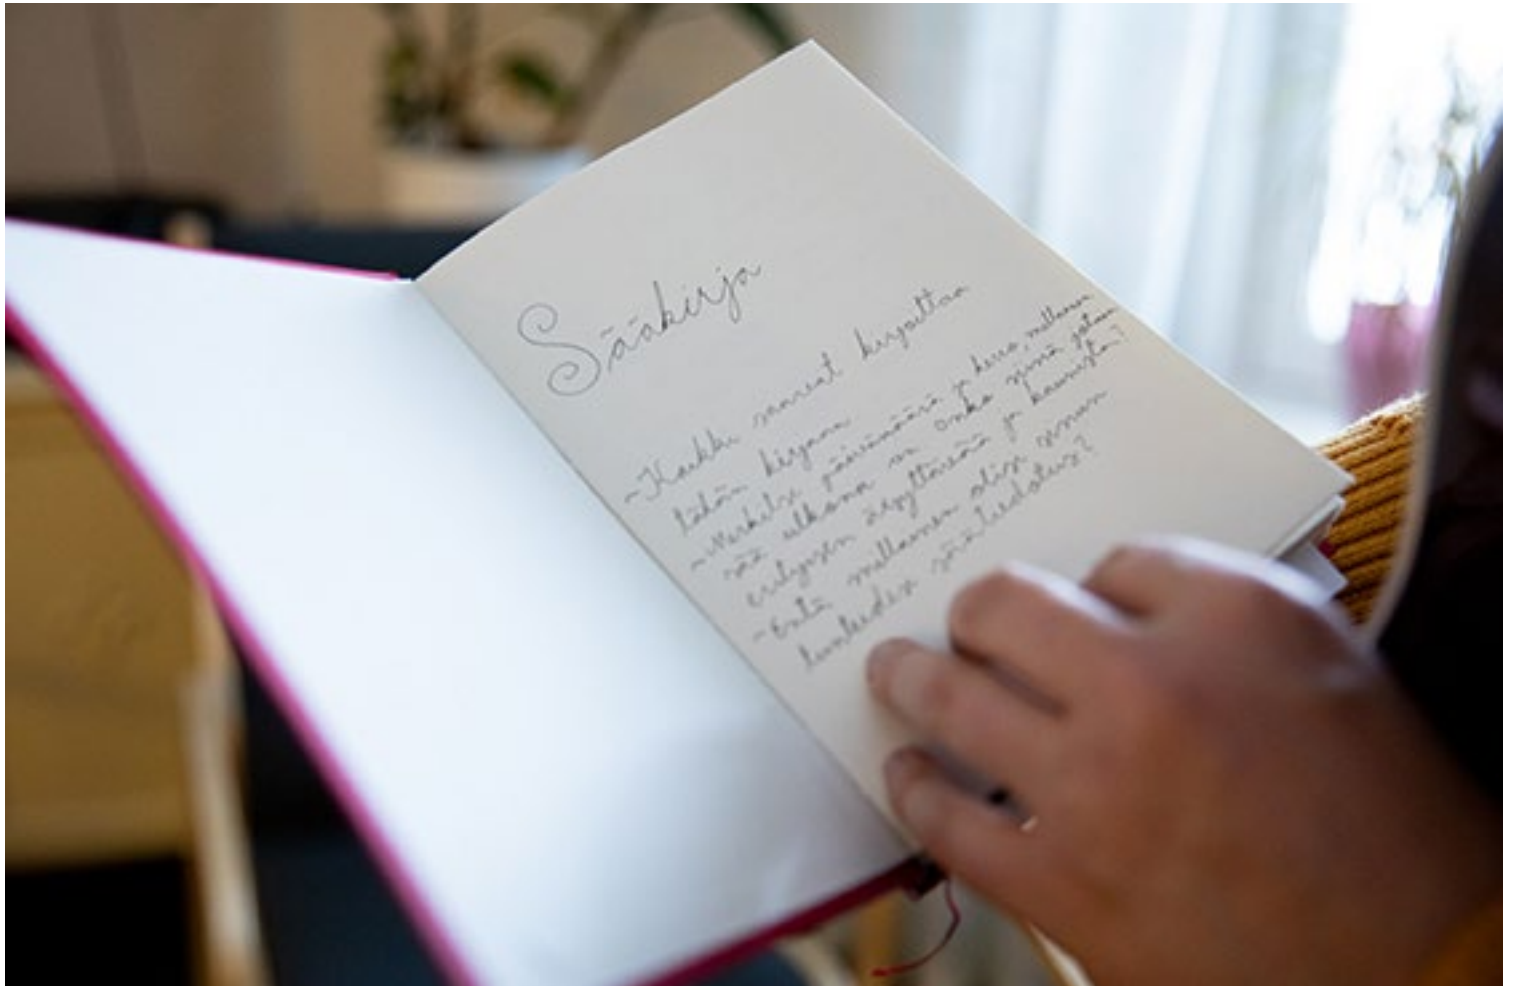 Sääkirja
-Kaikki saavat kirjoittaa
tähän kirjaan
-Merkitse päivämäärä ja kerro, millainen
sää ulkona on. Onko siinä jotain
erityisen ärsyttävää ja kaunista?
-Entä millainen olisi sinun
tunteidesi säätiedotus?